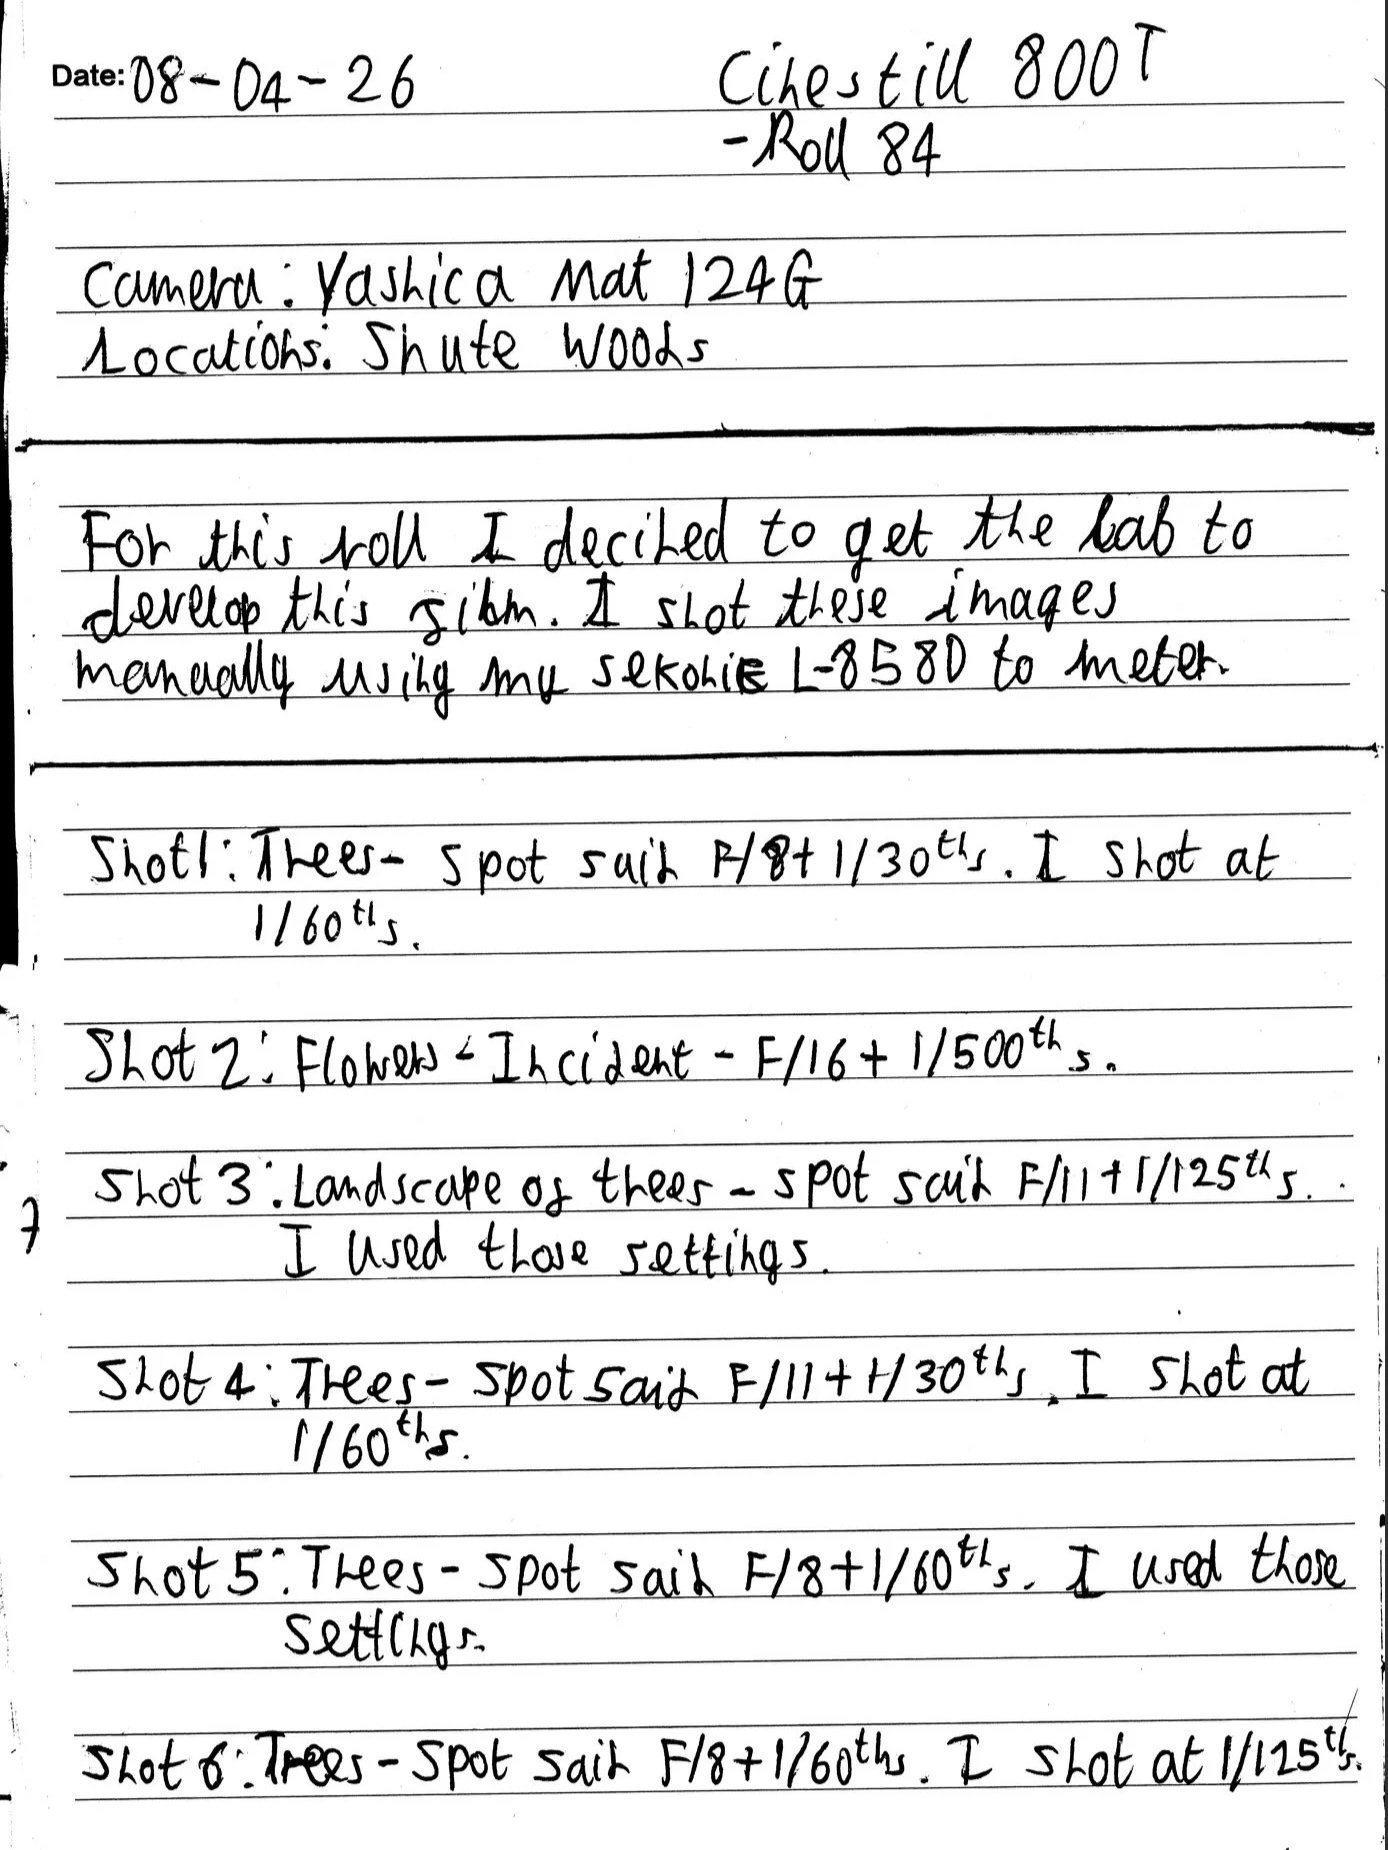 Date: 08-04-26
Cinestill 800T
-Roll 84
Camera: Yashica Mat 124G
Locations: Shute Woods
For this roll I decided to get the lab to
develop this film. I shot these images
manually using my sekonic L-858D to meter.
Shot 1: Trees- Spot said F/8+1/30ths. I shot at
1/60ths.
Shot 2: Flowers - Incident - F/16+1/500ths.
Shot 3: Landscape of trees - spot said F/11+1/125ths.
I used those settings.
Shot 4: Trees- Spot said F/11+1/30ths. I shot at
1/60ths.
Shot 5: Trees - Spot said F/8+1/60ths. I used those
settings.
Shot 6: Trees - Spot said F/8+1/60ths. I shot at 1/125ths.